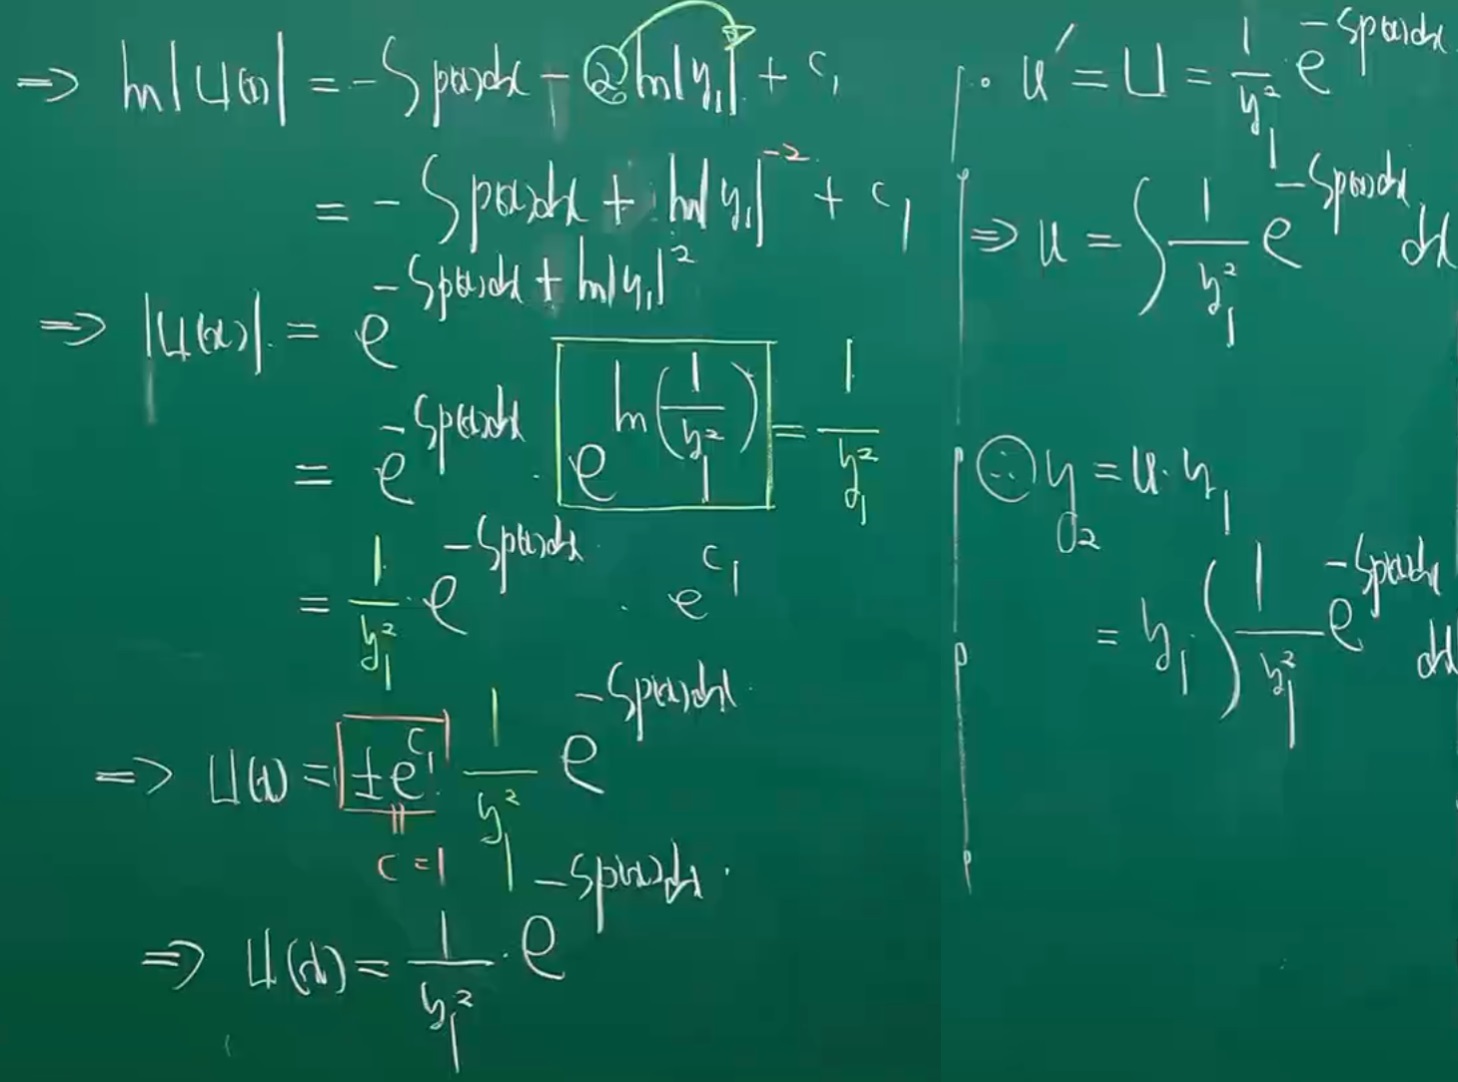 ⇒ ln|U(x)| = -∫p(x)dx - 2 ln|y₁| + c₁
= -∫p(x)dx + ln|y₁|⁻² + c₁
⇒ |U(x)| = e^(-∫p(x)dx + ln|y₁|²)
= e^(-∫p(x)dx) · e^(ln(1/y₁²)) = 1/y₁²
= 1/y₁² · e^(-∫p(x)dx) · e^(c₁)
⇒ U(x) = ±e^(c₁) 1/y₁² e^(-∫p(x)dx)
c = 1
⇒ U(x) = 1/y₁² · e^(-∫p(x)dx)
· u′ = U = 1/y₁² · e^(-∫p(x)dx)
⇒ u = ∫ 1/y₁² e^(-∫p(x)dx) dx
∴ y₂ = u · y₁
= y₁ ∫ 1/y₁² e^(-∫p(x)dx) dx